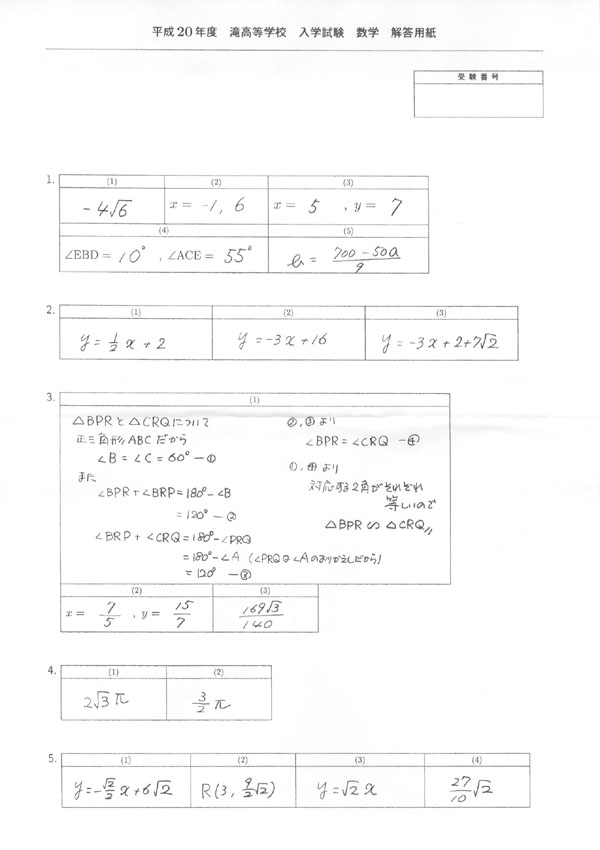 平成20年度 滝高等学校 入学試験 数学 解答用紙
受験番号
1.
(1) (2) (3)
-4√6 x = -1, 6 x = 5 , y = 7
(4) (5)
∠EBD = 10° , ∠ACE = 55° b = (700-50a)/9
2.
(1) (2) (3)
y = 1/2 x + 2 y = -3x + 16 y = -3x + 2 + 7√2
3.
(1)
△BPRと△CRQについて
正三角形ABCだから
∠B = ∠C = 60° ―①
また
∠BPR + ∠BRP = 180° - ∠B
= 120° ―②
∠BRP + ∠CRQ = 180° - ∠PRQ
= 180° - ∠A (∠PRQは∠Aのおりかえしだから)
= 120° ―③
②, ③より
∠BPR = ∠CRQ ―④
①, ④より
対応する2角がそれぞれ
等しいので
△BPR ∽ △CRQ〃
(2) (3)
x = 7/5 , y = 15/7 169√3/140
4.
(1) (2)
2√3 π 3/2 π
5.
(1) (2) (3) (4)
y = -√2/2 x + 6√2 R(3, 9/2 √2) y = √2 x 27/10 √2